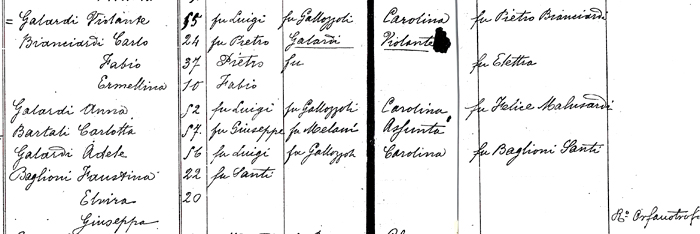 = Galardi Violante 55 fu Luigi fu Gallozzoli Carolina fu Pietro Branciardi
Bianciardi Carlo 24 fu Pietro Galardi Violante
Fabio 37 Pietro fu fu Elettra
Ermellina 10 Fabio
Galardi Anna 52 fu Luigi fu Gallozzoli Carolina fu Felice Malusardi
Bartali Carlotta 57 fu Giuseppe fu Melani Assunta
Galardi Adele 56 fu Luigi fu Gallozzoli Carolina fu Baglioni Santi
Baglioni Faustina 22 fu Santi
Elvira 20
Giuseppa
Ro Orfanotrofo